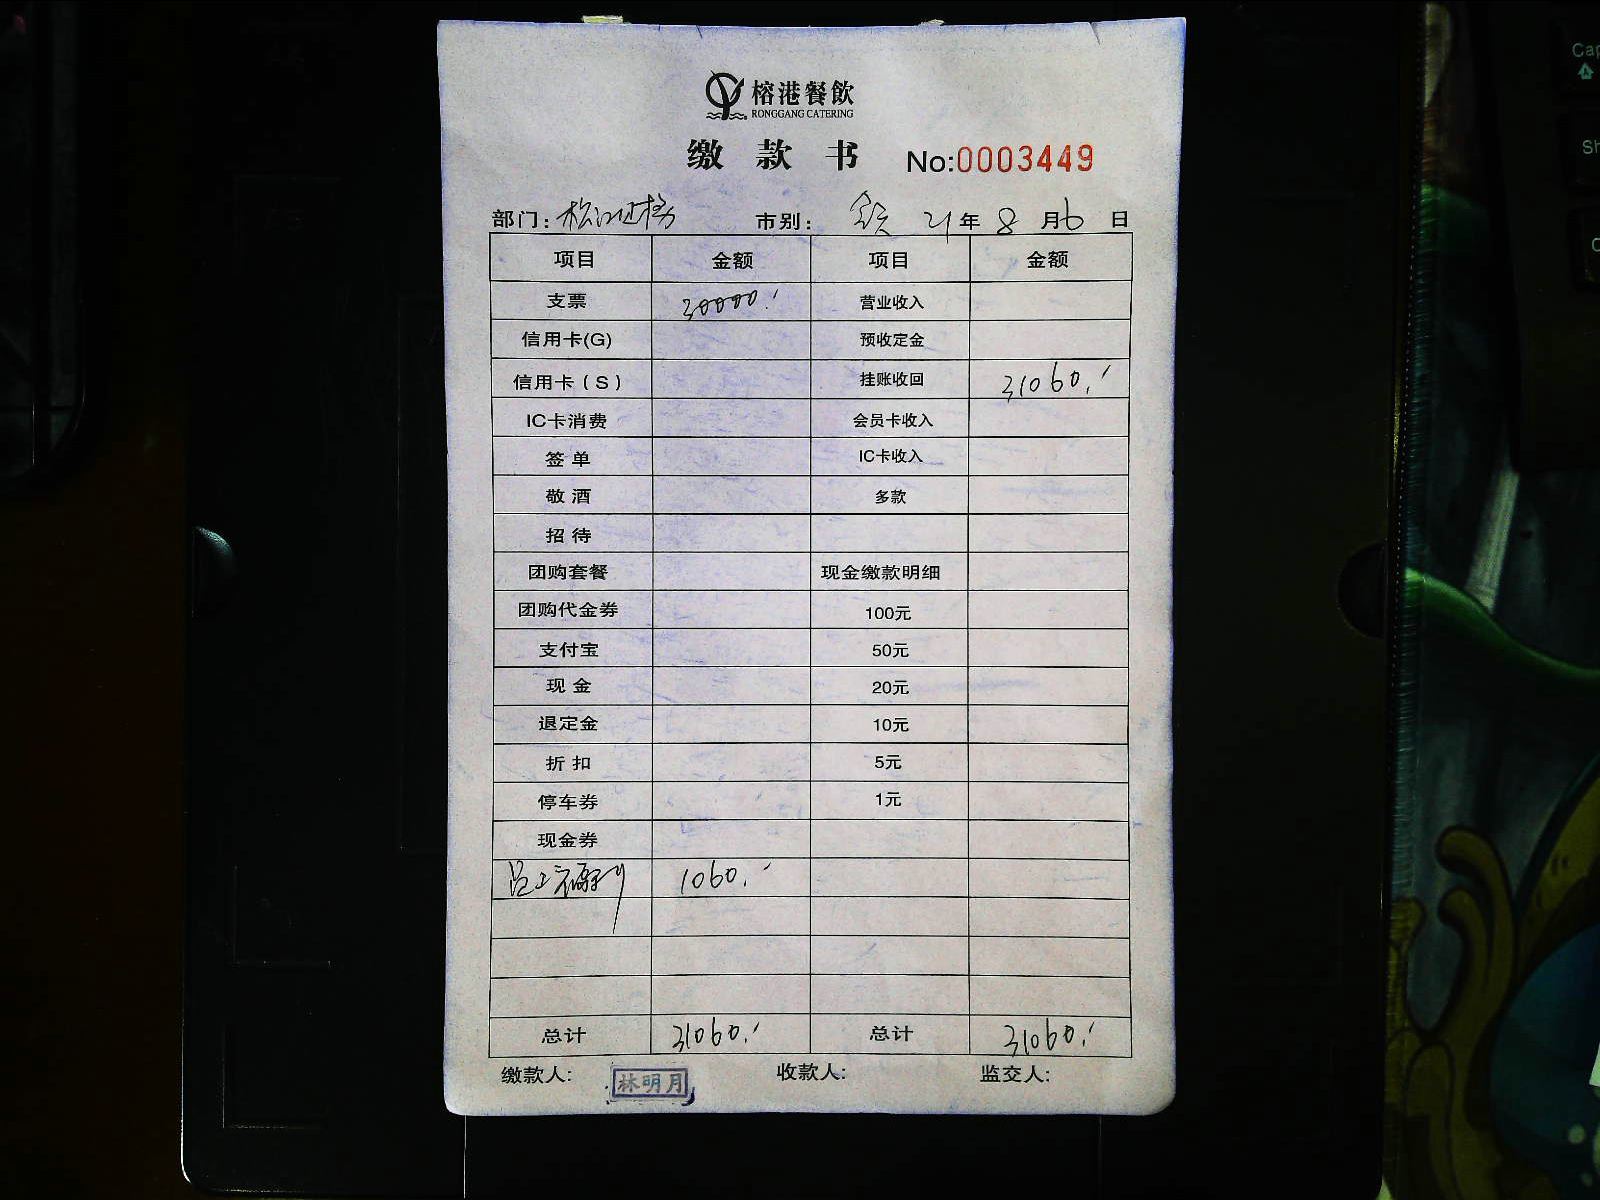 榕港餐飲
RONGGANG CATERING
缴款书 No:0003449
部门: 松江 市别: 21年8月6日
项目 金额 项目 金额
支票 30000.- 营业收入
信用卡(G) 预收定金
信用卡(S) 挂账收回 31060.-
IC卡消费 会员卡收入
签单 IC卡收入
敬酒 多款
招待
团购套餐 现金缴款明细
团购代金券 100元
支付宝 50元
现金 20元
退定金 10元
折扣 5元
停车券 1元
现金券
员工福利 1060.-
总计 31060.- 总计 31060.-
缴款人: 林明月 收款人: 监交人:
Cap
Sh
C